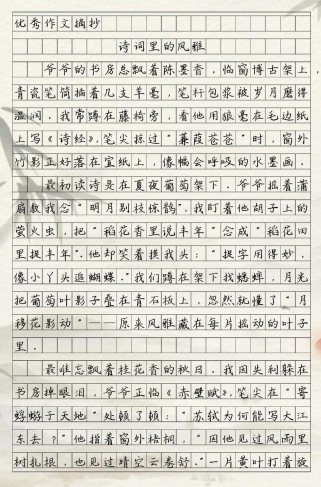 优秀作文摘抄
诗词里的风雅
爷爷的书房总飘着陈墨香，临窗博古架上，
青瓷笔筒插着几支羊毫，笔杆包浆被岁月磨得
温润．我常蹲在藤椅旁，看他用狼毫在毛边纸
上写《诗经》，笔尖掠过“蒹葭苍苍”时，窗外
竹影正好落在宣纸上，像幅会呼吸的水墨画．
最初读诗是在夏夜葡萄架下．爷爷摇着蒲
扇教我念“明月别枝惊鹊”，我盯着他胡子上的
萤火虫，把“稻花香里说丰年”念成“稻花田
里捉丰年”．他却笑着摸我头：“捉字用得妙，
像小丫头追蝴蝶．”我们蹲在架下找蟋蟀，月光
把葡萄叶影子叠在青石板上，忽然就懂了“月
移花影动”——原来风雅藏在每片摇动的叶子
里．
最难忘飘着桂花香的秋日．我因失利躲在
书房掉眼泪，爷爷正临《赤壁赋》，笔尖在“寄
蜉蝣于天地”处顿了顿：“苏轼为何能写大江
东去？”他指着窗外梧桐，“因他见过风雨里
树扎根，也见过晴空云卷舒．”一片黄叶打着旋